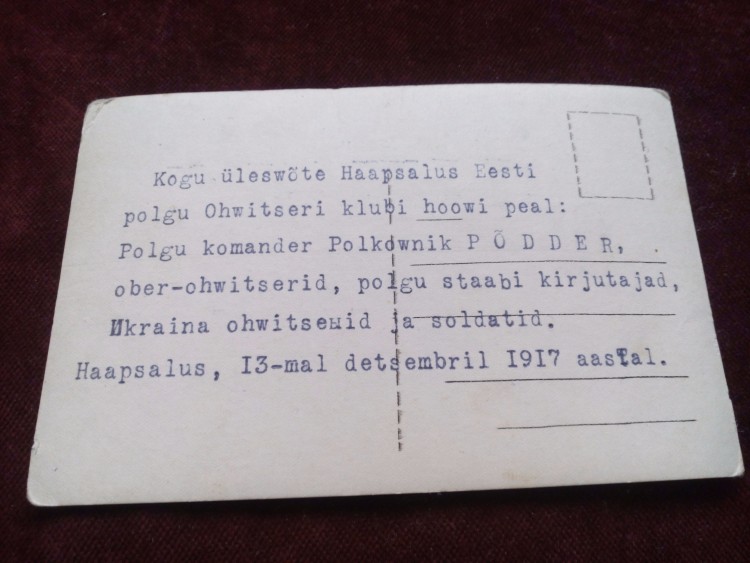 Kogu üleswõte Haapsalus Eesti
polgu Ohwitseri klubi hoowi peal:
Polgu komander Polkownik P Õ D D E R,
ober-ohwitserid, polgu staabi kirjutajad,
Ukraina ohwitseяid ja soldatid.
Haapsalus, I3-mal detsembril I9I7 aastal.